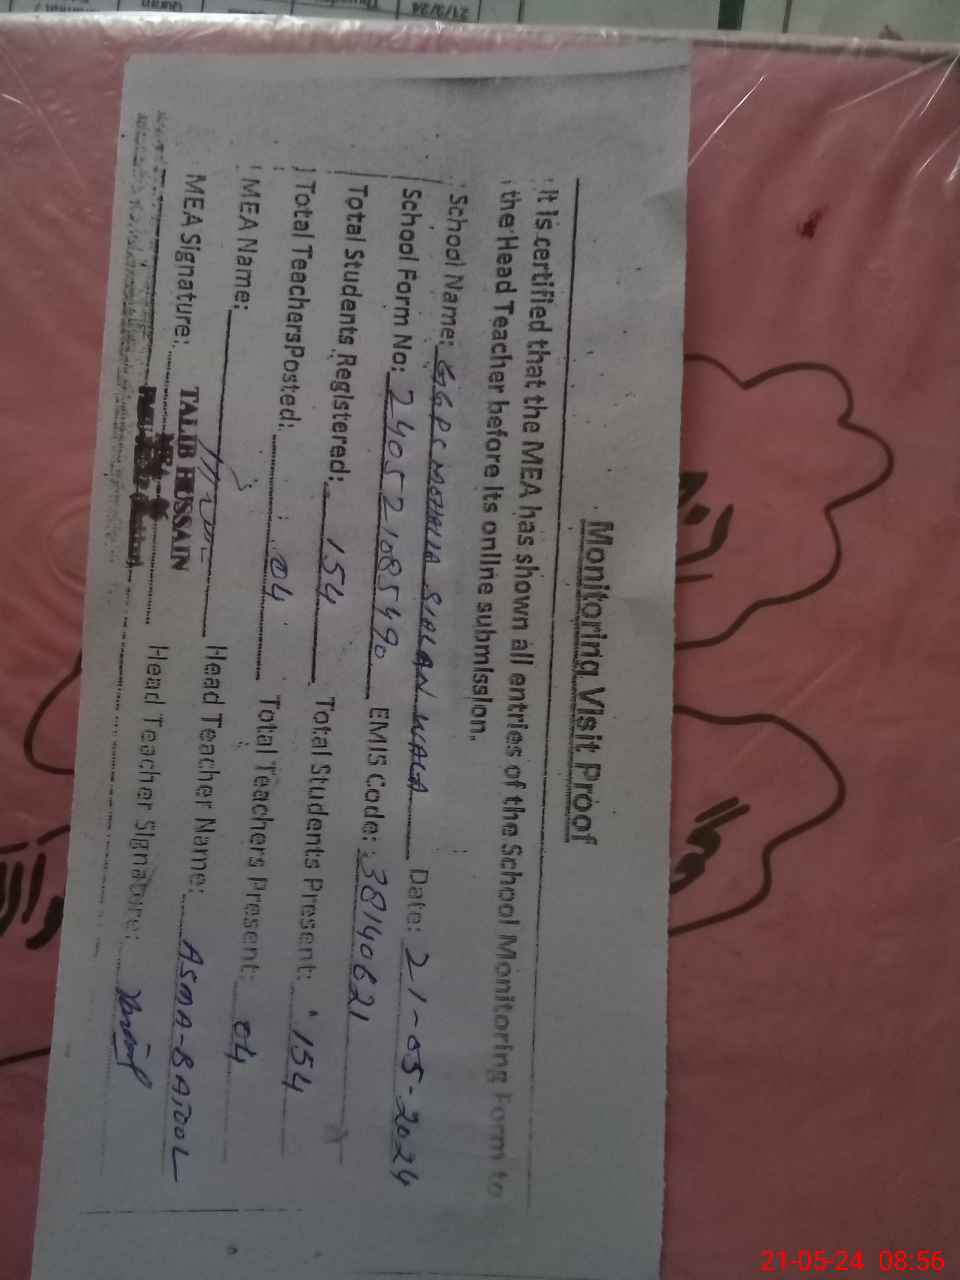 Monitoring Visit Proof
It is certified that the MEA has shown all entries of the School Monitoring Form to
the Head Teacher before its online submission.
School Name: GGPS MOHALLA SIALAN WALA Date: 21-05-2024
School Form No: 240521085490 EMIS Code: 38140621
Total Students Registered: 154 Total Students Present: 154
Total TeachersPosted: 04 Total Teachers Present: 04
MEA Name: Head Teacher Name: ASMA-BATOOL
MEA Signature: TALIB HUSSAIN Head Teacher Signature:
21/3/24
Quran
21-05-24 08:56